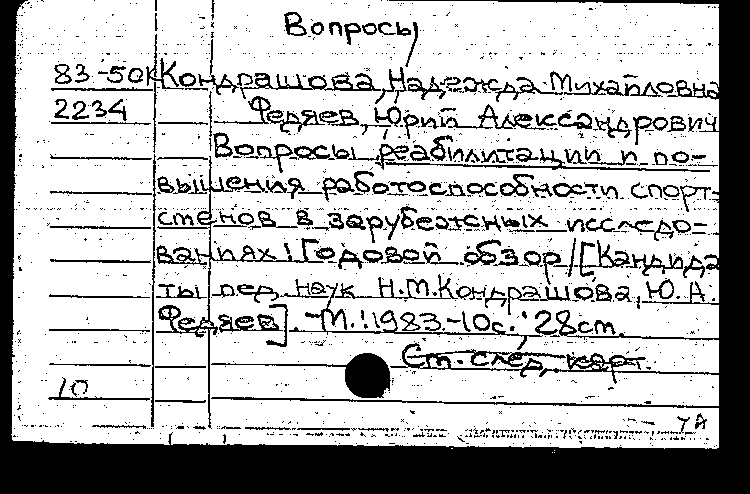 Вопросы
83-50К Кондрашова, Надежда Михайловна
2234 Федяев, Юрий Александрович
Вопросы реабилитации и по-
вышения работоспособности спорт-
сменов в зарубежных исследо-
ваниях: Годовой обзор/[Кандида
ты пед. наук Н.М.Кондрашова, Ю.А.
Федяев]. -М.: 1983.-10с.; 28см.
См. след. карт.
10